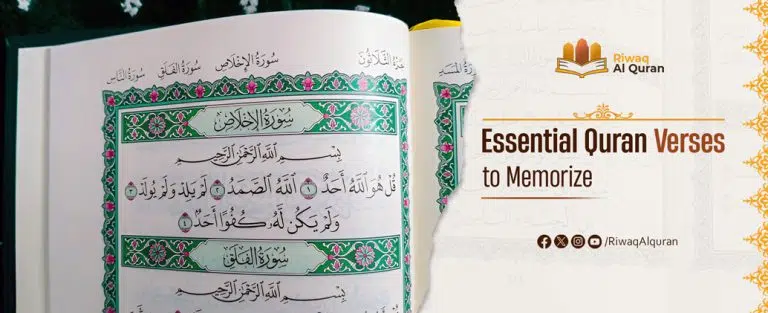 الجُزْءُ الثَّلَاثُونَ سُورَةُ الإِخْلَاصِ سُورَةُ الفَلَقِ سُورَةُ النَّاسِ
سُورَةُ الإِخْلَاصِ
بِسْمِ اللَّهِ الرَّحْمَٰنِ الرَّحِيمِ
قُلْ هُوَ اللَّهُ أَحَدٌ ١ اللَّهُ الصَّمَدُ ٢ لَمْ يَلِدْ وَلَمْ يُولَدْ ٣
وَلَمْ يَكُن لَّهُۥ كُفُوًا أَحَدٌۢ ٤
سُورَةُ الفَلَقِ
بِسْمِ اللَّهِ الرَّحْمَٰنِ الرَّحِيمِ
سُورَةُ المَسَدِ
Riwaq
Al Quran
Essential Quran Verses
to Memorize
/RiwaqAlquran